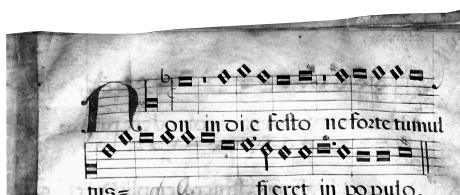 Non in die festo ne forte tumul
tus= fieret in populo.